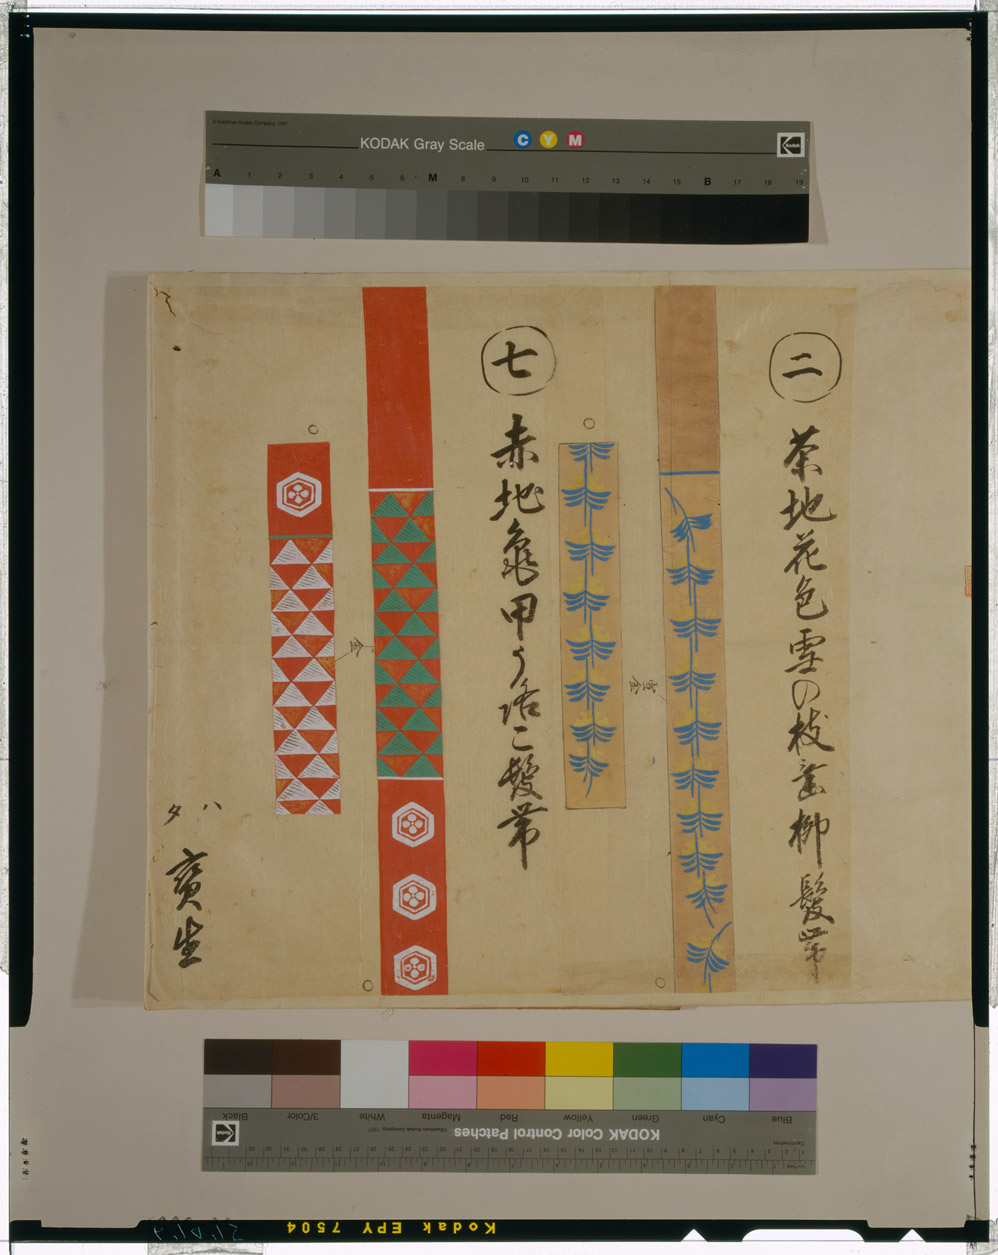 © Eastman Kodak Company, 1981
KODAK Gray Scale
C Y M
Kodak
A 1 2 3 4 5 6 M 8 9 10 11 12 13 14 15 B 17 18 19
二
茶地花色雪の枝垂柳鬘帯
七
赤地亀甲うろこ鬘帯
雪金
金
ハ
タ
寳生
Blue Cyan Green Yellow Red Magenta White 3/Color Black
KODAK Color Control Patches
Kodak
Kodak EPY 7504